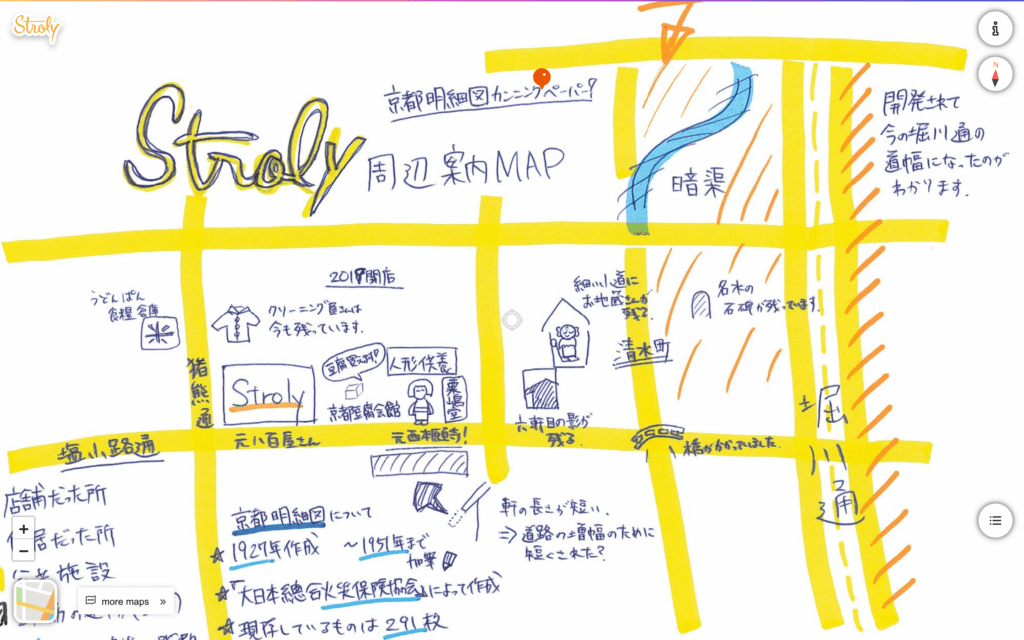 Stroly
京都明細図カンニングペーパー?
Stroly
周辺案内MAP
暗渠
開発されて
今の堀川通の
道幅になったのが
わかります.
2018開店
うどんぱん
食糧倉庫
クリーニング屋さんは
今も残っています.
細い小道に
お地蔵さんが
残る.
名木の
石碑が残っています.
清水町
猪熊通
Stroly
元八百屋さん
豆腐買ってす!
京都豆腐会館
人形供養
粟嶋堂
元西権頭寺!
六軒目の影が
残る.
橋がかかってました.
堀川通
塩小路通
店舗だった所
住居だった所
施設
京都明細図について
☆1927年作成 ~1951年まで
加筆
☆「大日本總合火災保険協会」によって作成
☆現存しているものは291枚
軒の長さが短い.
⇒道路の増幅のために
短くされた?
N
+
−
more maps »